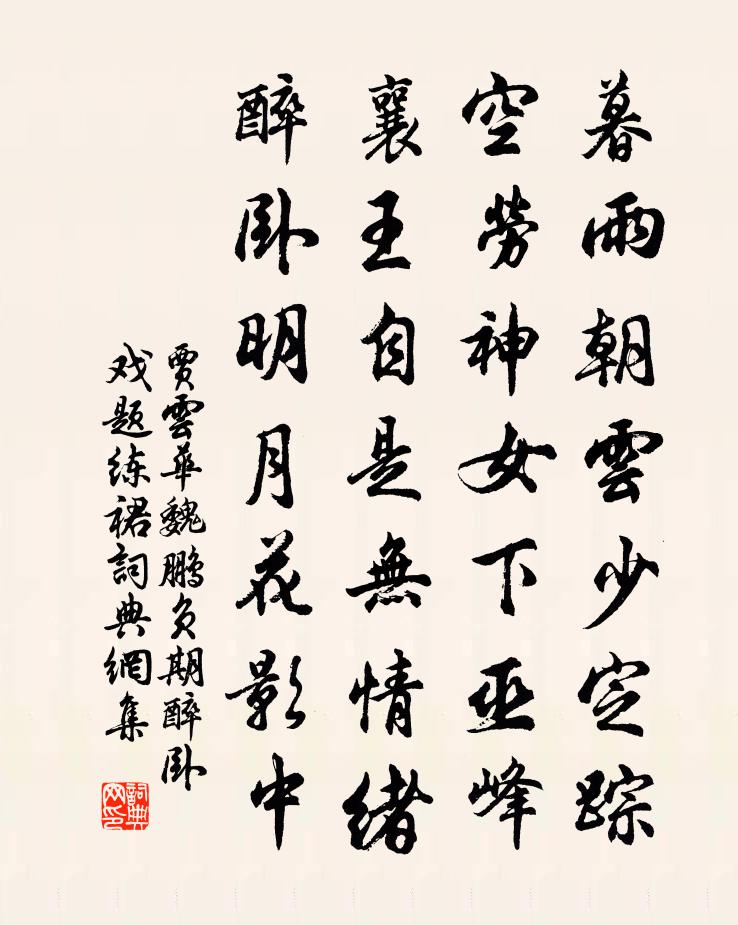 暮雨朝雲少定踪
空勞神女下巫峰
襄王自是無情緒
醉卧明月花影中
賈雲華魏鵬负期醉卧
戏题练裙詞典網集
詞典网印